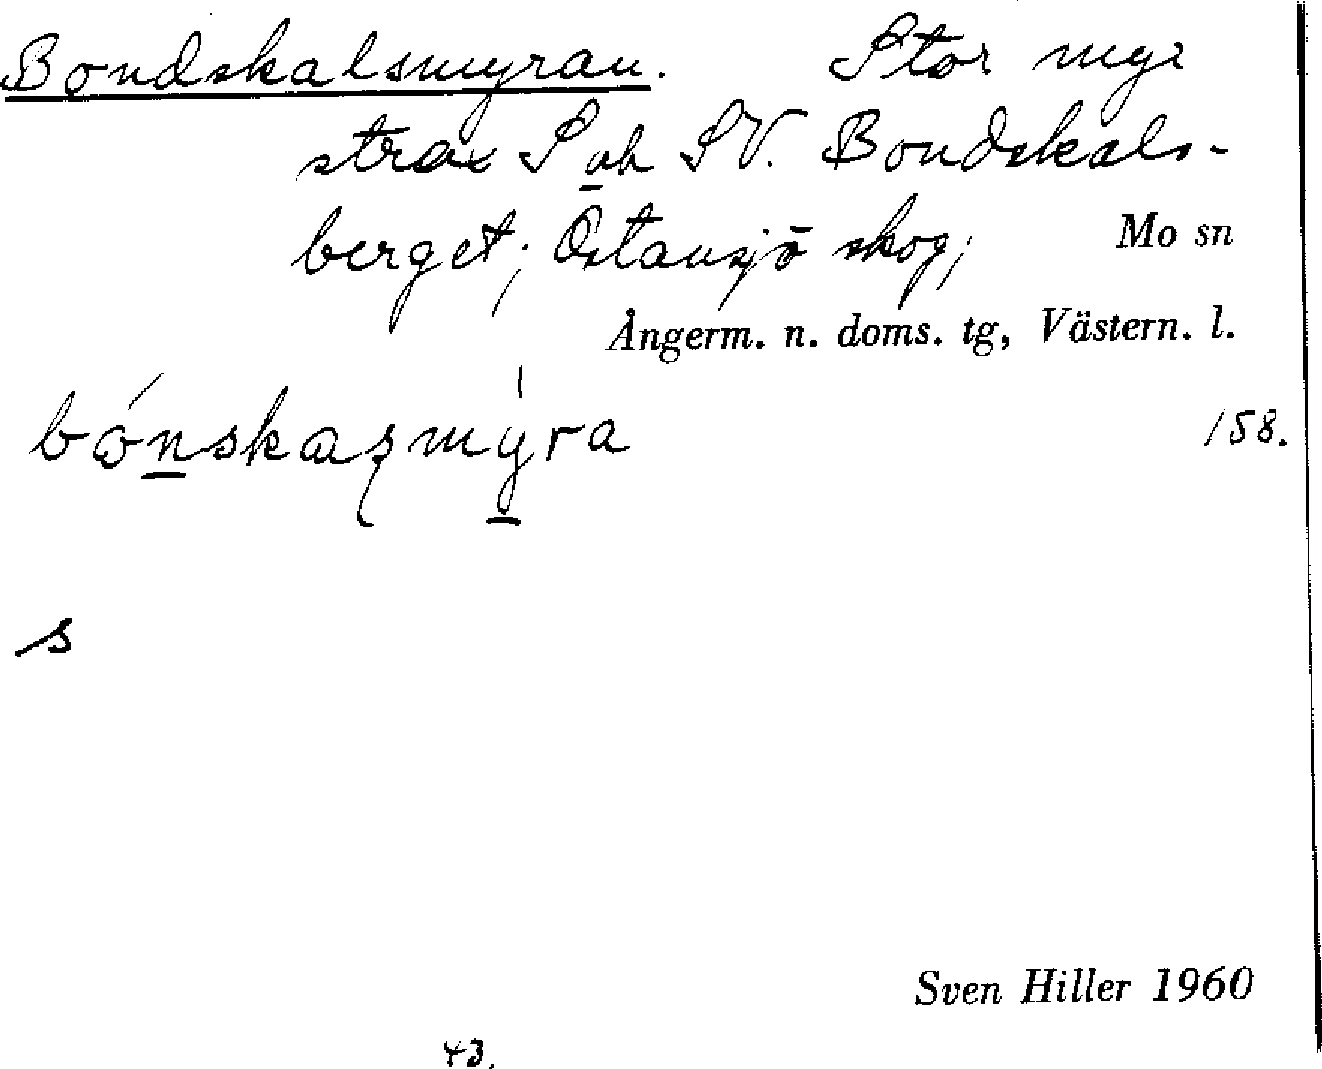 Bondskalsmyran. Stor myr
strax S och SV. Bondskals-
berget; Östansjö skog; Mo sn
Ångerm. n. doms. tg, Västern. l.
158.
s
Sven Hiller 1960
43.